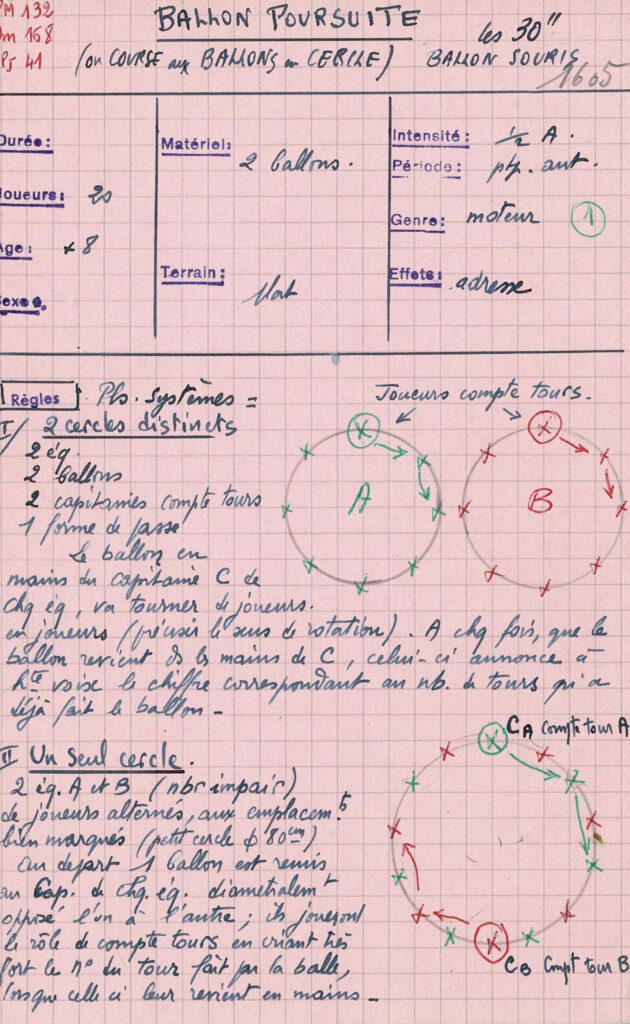 PM 132
BALLON POURSUITE
les 30"
Jm 168
PJ 41
(ou COURSE aux BALLONS en CERCLE)
BALLON SOURIS
1605
Durée:
Matériel:
2 ballons.
Intensité: ½ A.
Période:
Joueurs: 20
Genre: moteur
1
Age: + 8
Terrain:
plat
Effets: adresse
Sexe:
Règles Pls. systèmes =
Joueurs compte tours.
I/ 2 cercles distincts
2 éq.
2 ballons
2 capitaines compte tours
1 forme de passe
A
B
Le ballon en
mains du capitaine C de
chq éq, va tourner de joueurs.
en joueurs (préciser le sens de rotation). A chq fois, que le
ballon revient ds les mains de C, celui-ci annonce à
hte voix le chiffre correspondant au nb. de tours qu'a
déjà fait le ballon -
II Un seul cercle.
CA compte tour A
2 éq. A et B (nbr impair)
de joueurs alternés, aux emplacem.ts
bien marqués (petit cercle ϕ 80cm)
au départ 1 ballon est remis
au Cap. de chq. eq. diametralemt
opposé l'un à l'autre; ils joueront
le rôle de compte tours en criant très
fort le n° du tour fait par la balle,
lorsque celle ci leur revient en mains -
CB Compt tour B